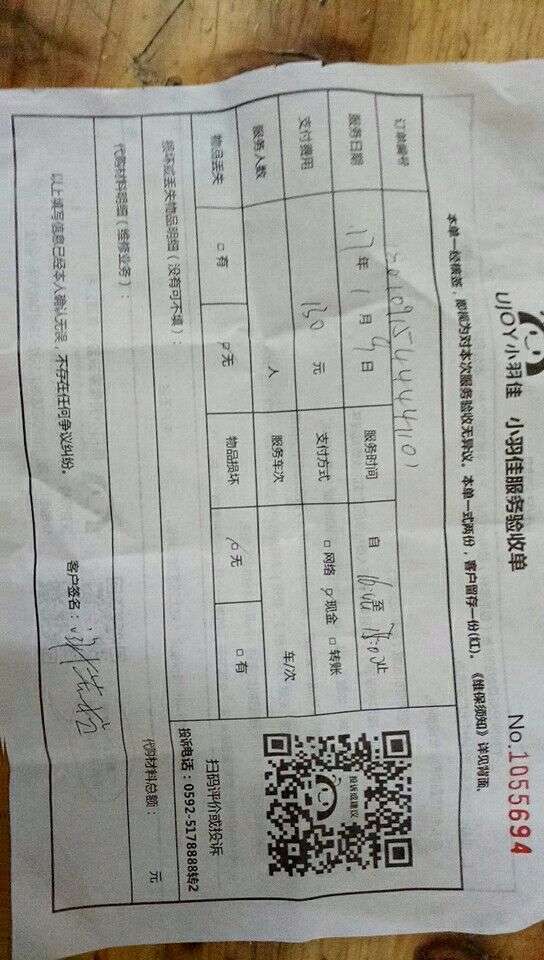 UJOY小羽佳 小羽佳服务验收单 No.1055694
本单一经横签，即视为对本次服务验收无异议。本单一式两份，客户留存一份(红)。《维保须知》详见背面。
订单编号
服务日期 17年1月9日 服务时间 自 至 止
支付费用 130元 支付方式 □网络 ☑现金 □转账
服务人数 人 服务车次 车/次
物品丢失 □有 ☑无 物品损坏 ☑无 □有
损坏或丢失物品明细（没有可不填）：
代购材料明细（维修业务）：
代购材料总额： 元
投诉或建议
扫码评价或投诉
投诉电话：0592-5178888转2
以上填写信息已经本人确认无误，不存在任何争议纠纷。 客户签名：